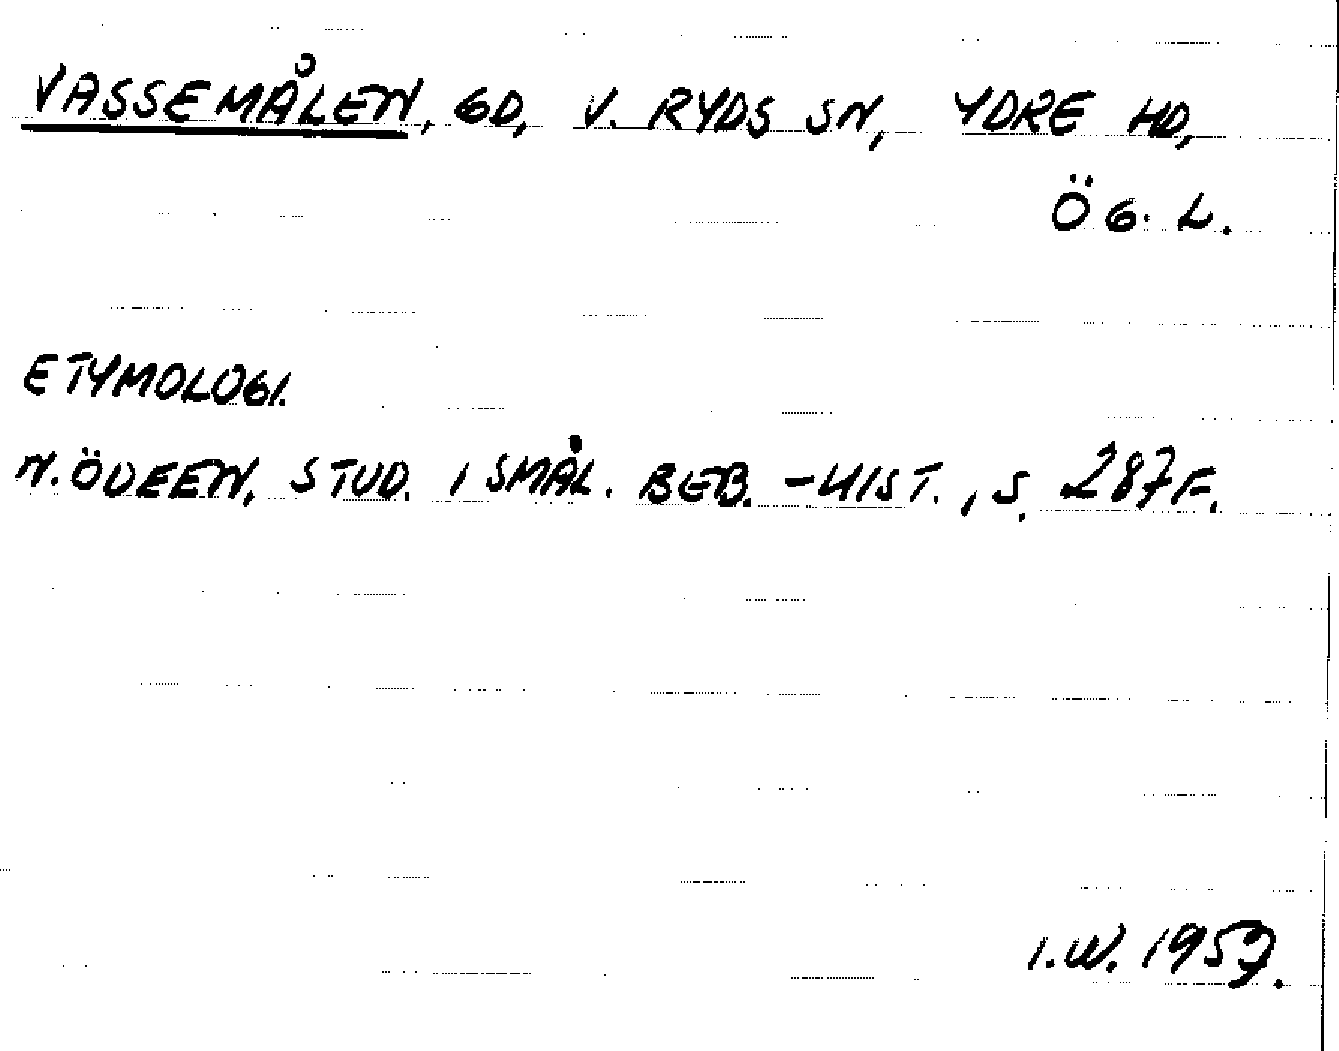 VASSEMÅLEN, GD, V. RYDS SN, YDRE HD,
ÖG. L.
ETYMOLOGI.
N. ÖDEEN, STUD. I SMÅL. BEB. -HIST., S. 287 F.
I.W. 1957.